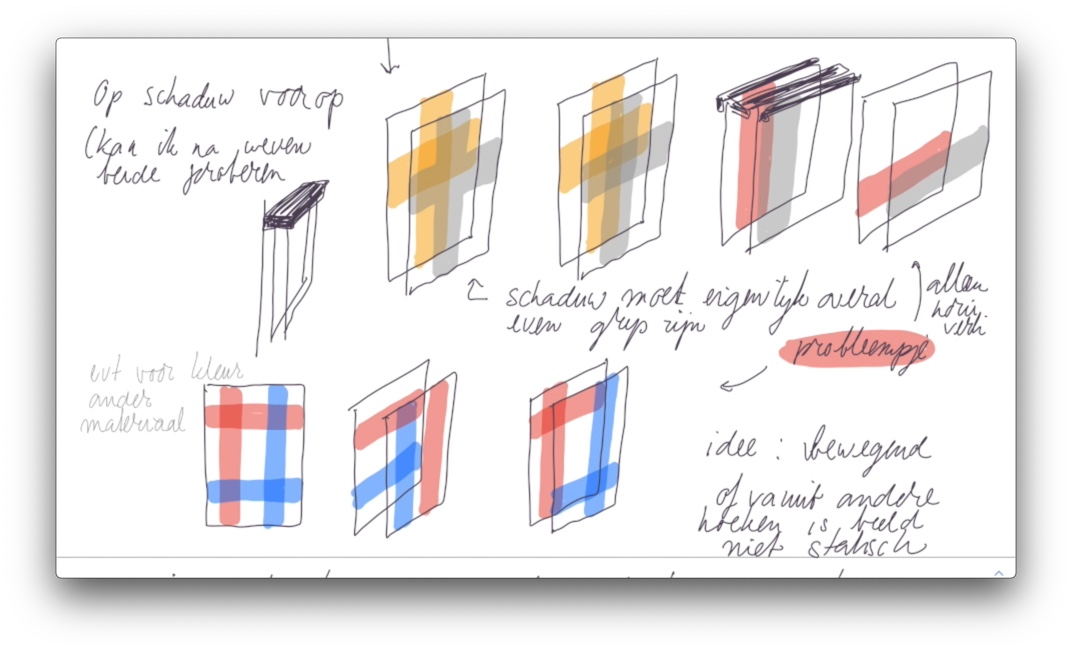 Op schaduw voorop
(kan ik na weven
beide proberen
schaduw moet eigenlijk overal
even grijs zijn
alleen
horiz.
verti
probleempje
evt voor kleur
ander
materiaal
idee : bewegend
of vanuit andere
hoeken is beeld
niet statisch